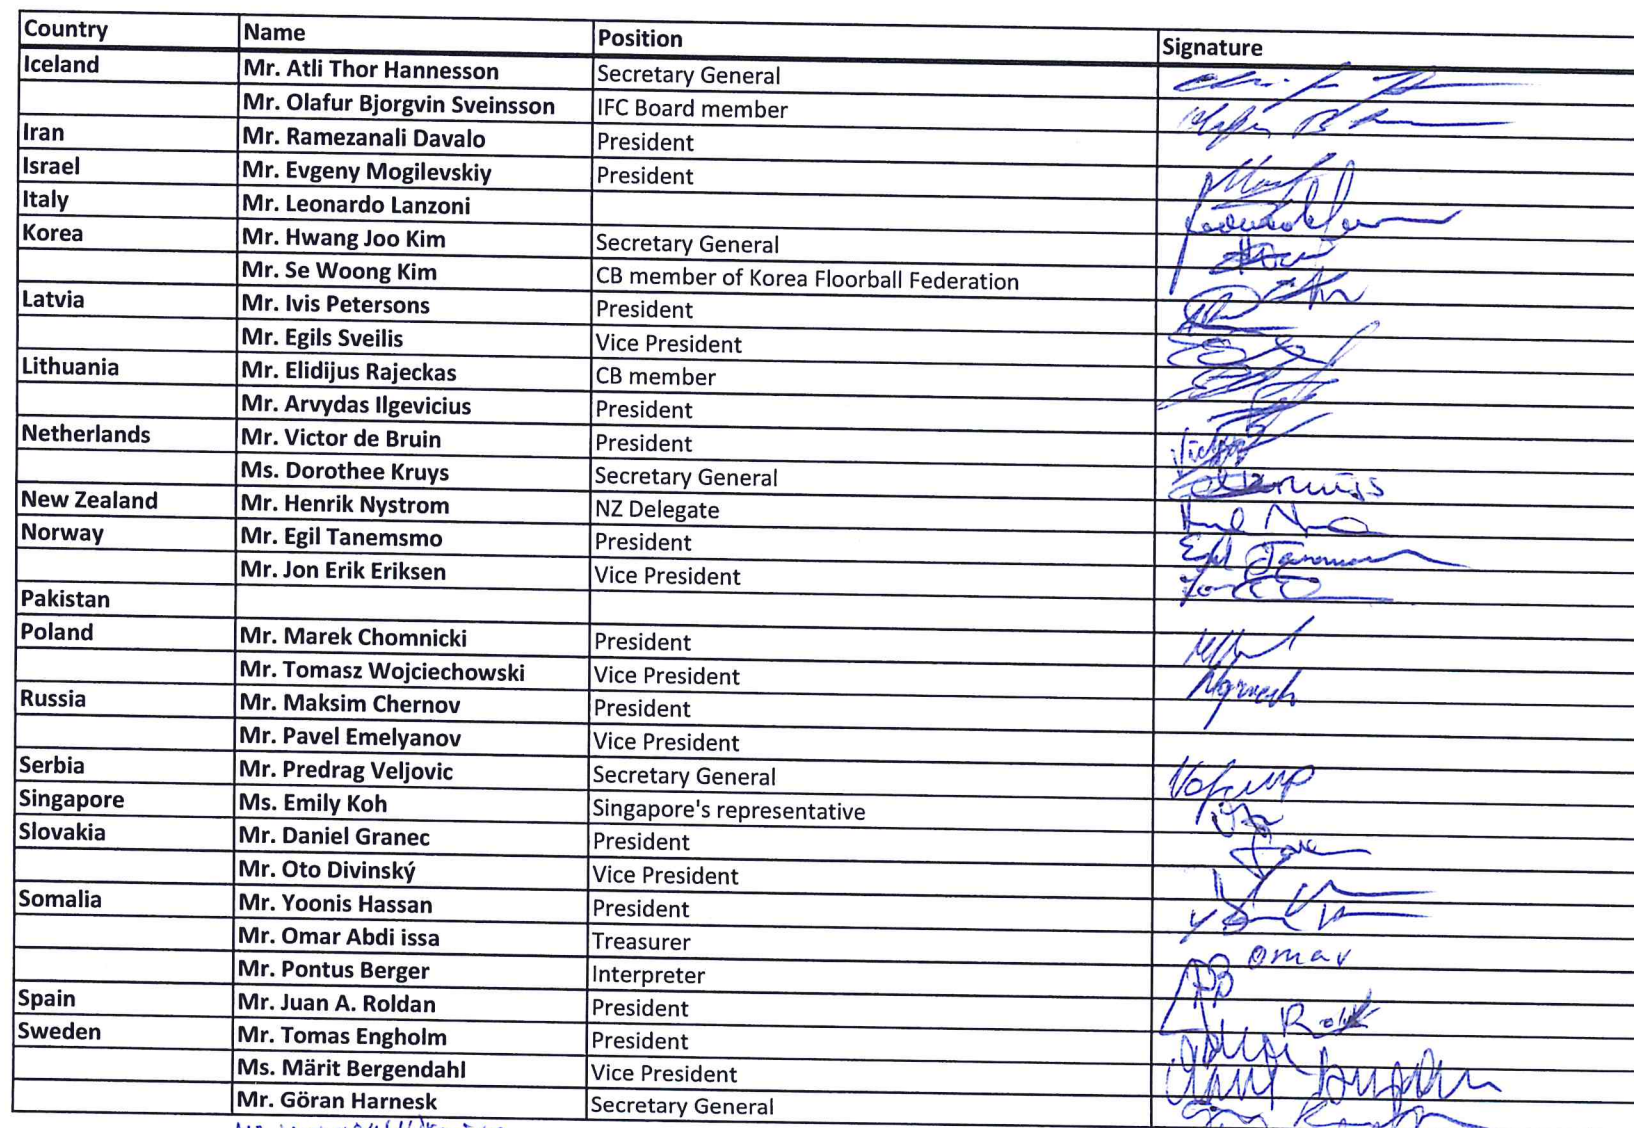 Country Name Position Signature
Iceland Mr. Atli Thor Hannesson Secretary General
Mr. Olafur Bjorgvin Sveinsson IFC Board member
Iran Mr. Ramezanali Davalo President
Israel Mr. Evgeny Mogilevskiy President
Italy Mr. Leonardo Lanzoni
Korea Mr. Hwang Joo Kim Secretary General
Mr. Se Woong Kim CB member of Korea Floorball Federation
Latvia Mr. Ivis Petersons President
Mr. Egils Sveilis Vice President
Lithuania Mr. Elidijus Rajeckas CB member
Mr. Arvydas Ilgevicius President
Netherlands Mr. Victor de Bruin President Victor
Ms. Dorothee Kruys Secretary General
New Zealand Mr. Henrik Nystrom NZ Delegate
Norway Mr. Egil Tanemsmo President
Mr. Jon Erik Eriksen Vice President
Pakistan
Poland Mr. Marek Chomnicki President
Mr. Tomasz Wojciechowski Vice President
Russia Mr. Maksim Chernov President
Mr. Pavel Emelyanov Vice President
Serbia Mr. Predrag Veljovic Secretary General
Singapore Ms. Emily Koh Singapore's representative
Slovakia Mr. Daniel Granec President
Mr. Oto Divinský Vice President
Somalia Mr. Yoonis Hassan President
Mr. Omar Abdi issa Treasurer omar
Mr. Pontus Berger Interpreter PB
Spain Mr. Juan A. Roldan President
Sweden Mr. Tomas Engholm President
Ms. Märit Bergendahl Vice President
Mr. Göran Harnesk Secretary General